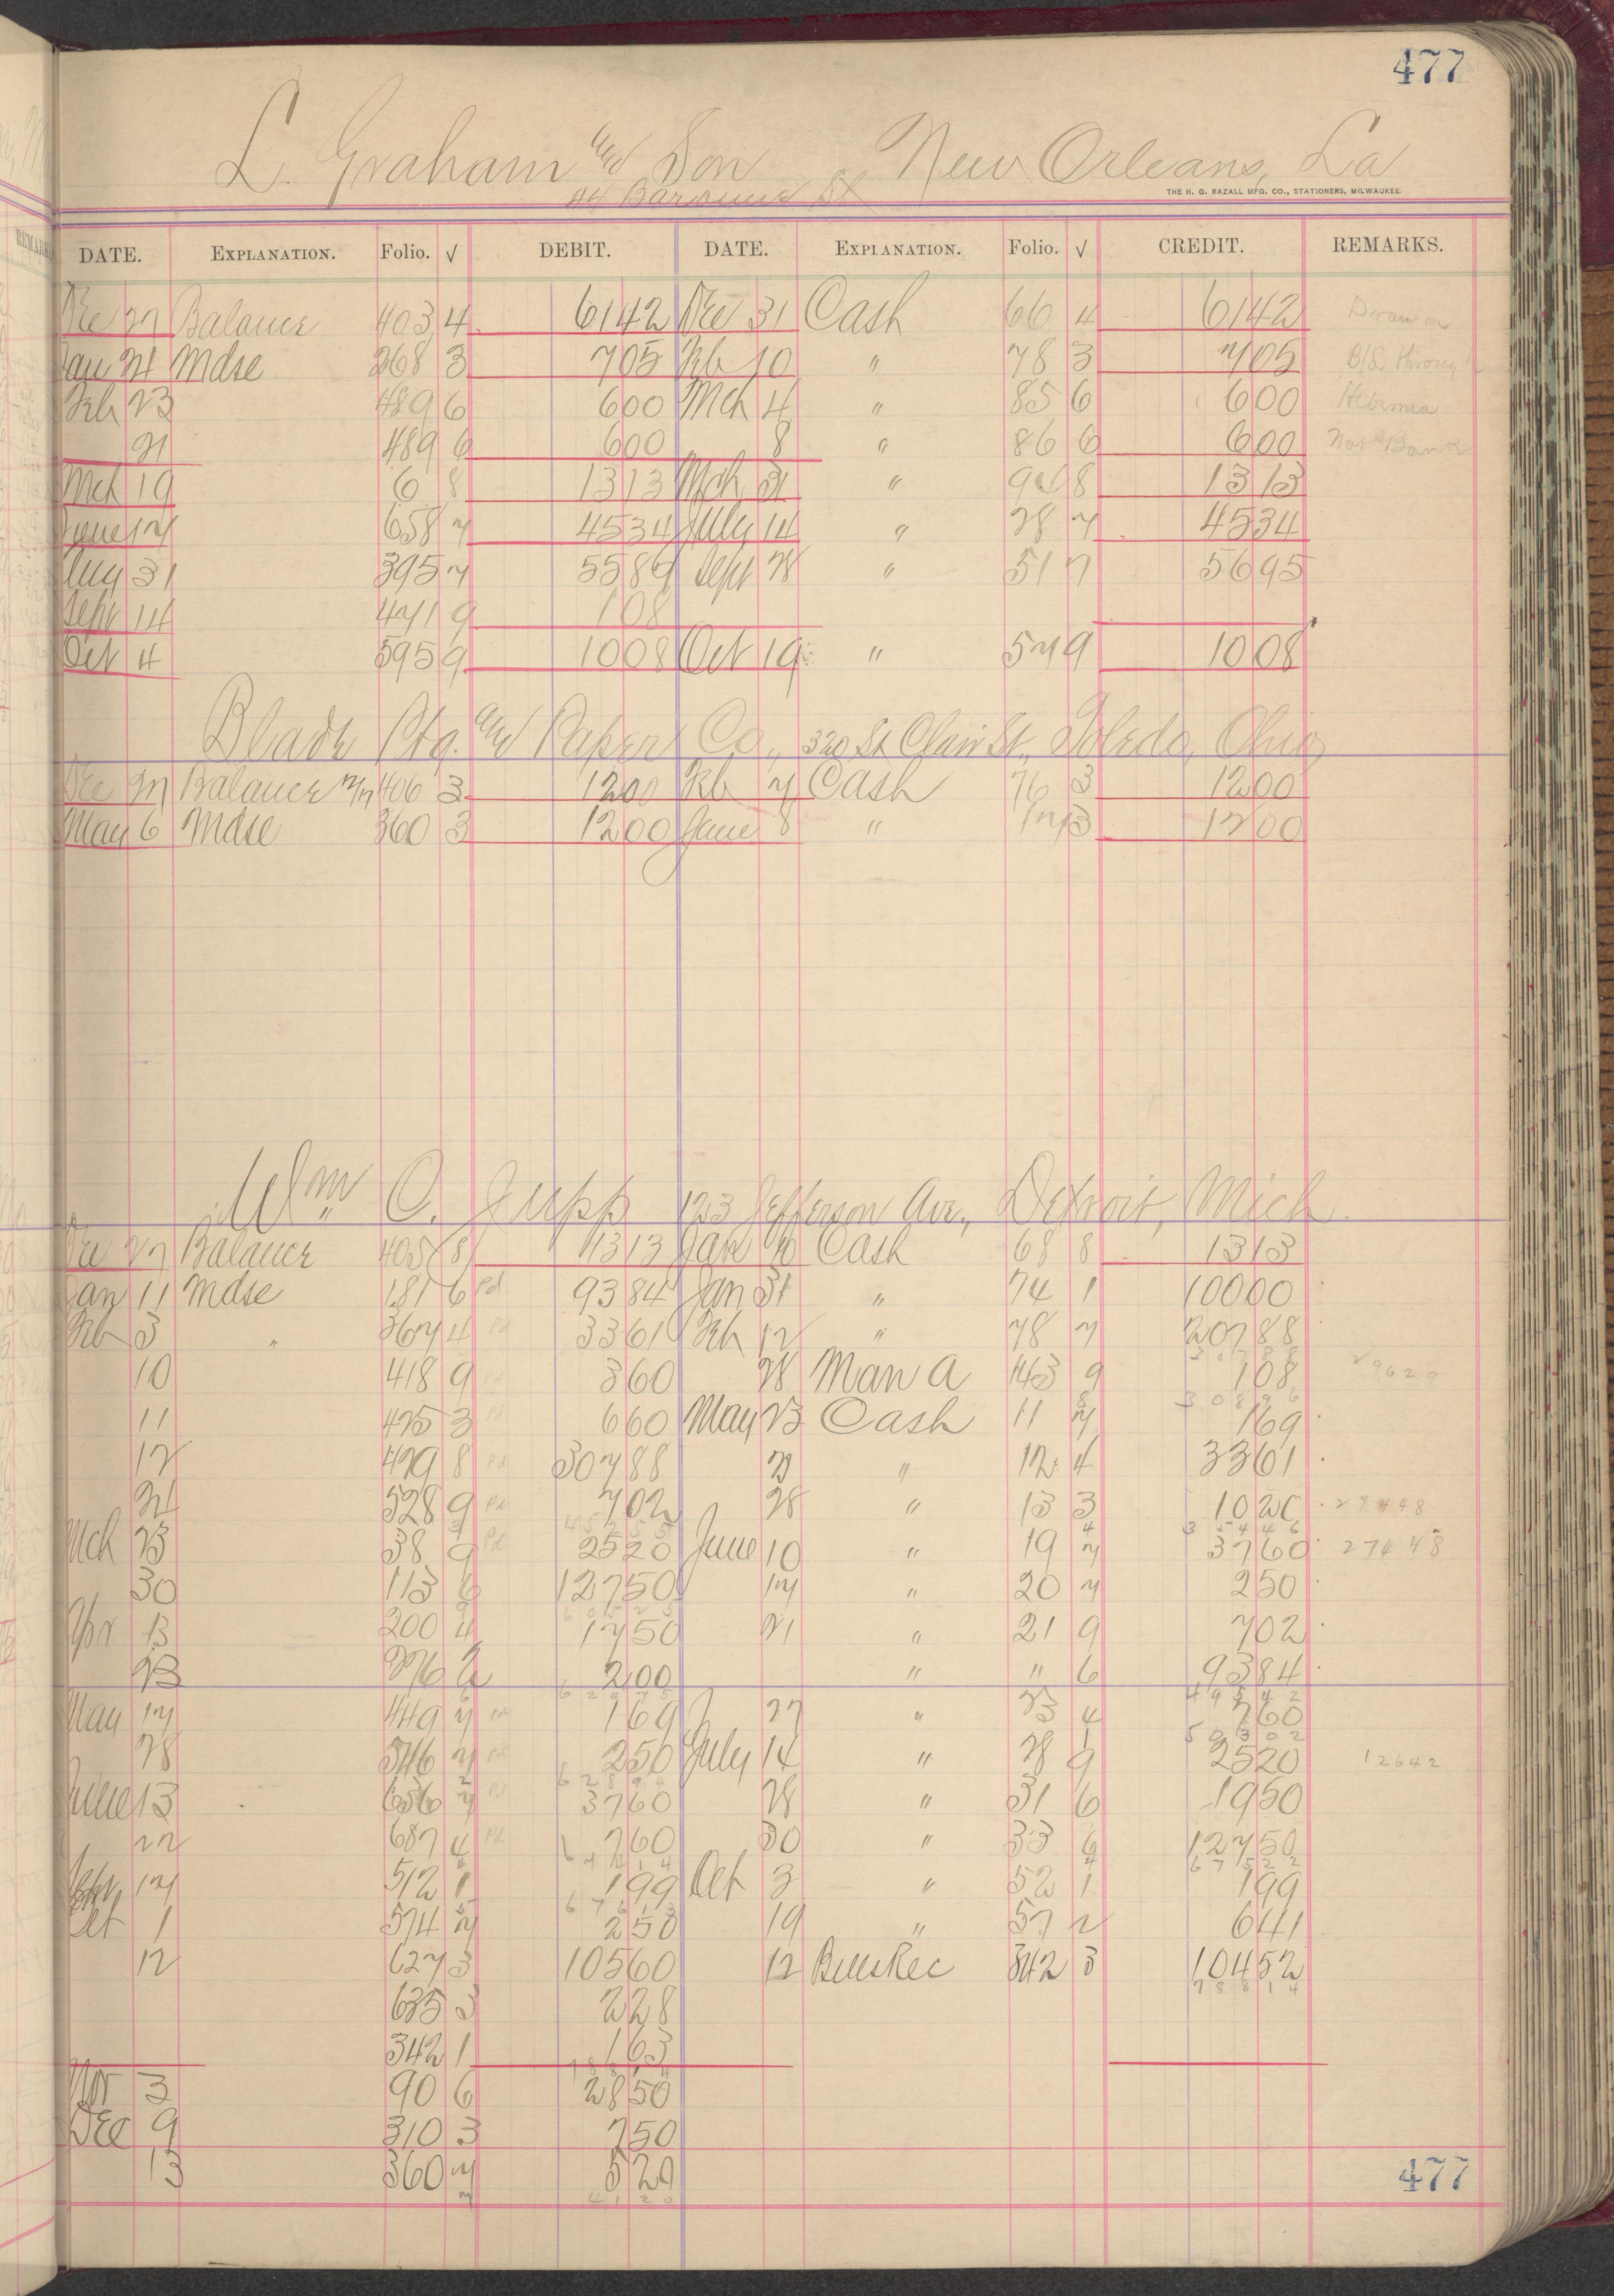 477
L. Graham and Son New Orleans, La
44 Baronne St
THE H. G. RAZALL MFG. CO., STATIONERS, MILWAUKEE
DATE. EXPLANATION. Folio. √ DEBIT. DATE. EXPLANATION. Folio. √ CREDIT. REMARKS.
Dec 27 Balance 403 4 6142 Dec 31 Cash 66 4 6142 Drawn on
Jan 24 Mdse 268 3 705 Feb 10 " 78 3 705
Feb 23 489 6 600 Mch 4 " 85 6 600 Hibernia
21 489 6 600 8 " 86 6 600 Natl Bank
Mch 19 6 8 1313 Mch 31 " 94 8 1313
June 17 658 7 4534 July 14 " 28 7 4534
Aug 31 395 7 5589 Sept 28 " 51 7 5695
Sept 14 471 9 108
Oct 4 595 9 1008 Oct 19 " 57 9 1008
Blade Ptg. and Paper Co., 320 St Clair St., Toledo, Ohio
Dec 27 Balance 406 3 1200 Feb 7 Cash 76 3 1200
May 6 Mdse 360 3 1200 June 8 " 17 3 1200
Wm C. Jupp 123 Jefferson Ave., Detroit, Mich
Dec 27 Balance 405 8 1313 Jan 10 Cash 68 8 1313
Jan 11 Mdse 181 6 Pd 9384 Jan 31 " 74 1 10000
Feb 3 " 367 4 Pd 3361 Feb 12 " 78 7 20788
10 418 9 360 28 Man A 143 9 108
11 425 3 Pd 660 May 23 Cash 11 7 169
30896
12 429 8 Pd 30788 27 " 12 4 3361
24 528 9 Pd 702 28 " 13 3 1020 27448
Mch 23 38 9 Pd 2520 June 10 " 19 7 3760 27448
30 113 6 12750 17 " 20 7 250
Apr 13 200 4 1750 21 " 21 9 702
23 276 2 200 " " 6 9384
May 17 449 7 Pd 169 27 " 23 4 760
28 546 7 Pd 250 July 14 " 28 9 2520 12642
62894
June 13 636 7 Pd 3760 28 " 31 6 1950
22 687 4 Pd 760 30 " 33 6 12750
67522
Sept 17 512 1 199 Oct 3 " 52 1 199
Oct 1 574 7 250 19 " 57 2 641
12 627 3 10560 12 Bills Rec 342 3 10452
78814
635 3 228
342 1 163
Nov 3 90 6 2850
Dec 9 310 3 750
13 360 7 520
4120
477